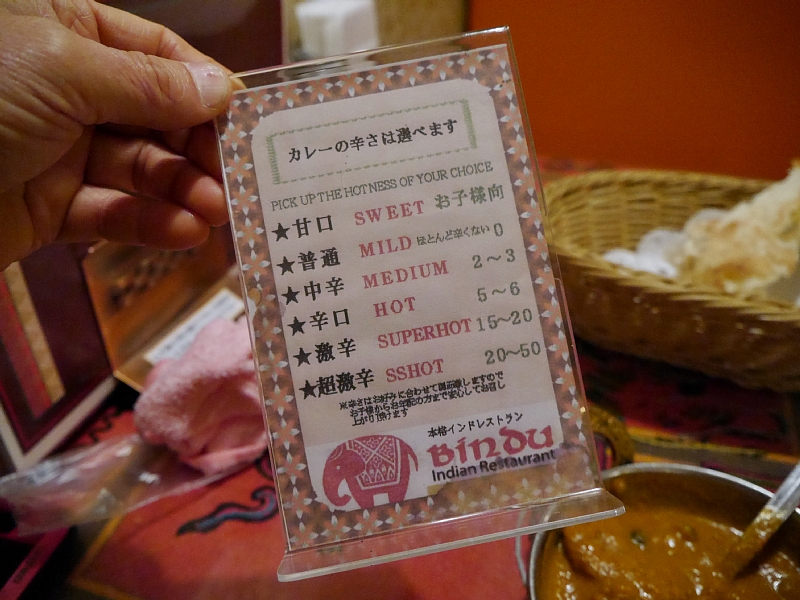 カレーの辛さは選べます
PICK UP THE HOTNESS OF YOUR CHOICE
★甘口 SWEET お子様向
★普通 MILD ほとんど辛くない 0
★中辛 MEDIUM 2～3
★辛口 HOT 5～6
★激辛 SUPERHOT 15～20
★超激辛 SSHOT 20～50
※辛さはお好みに合わせて御用意しますので
お子様からお年配の方まで安心してお召し
上がり頂けます
本格インドレストラン
BINDU
Indian Restaurant